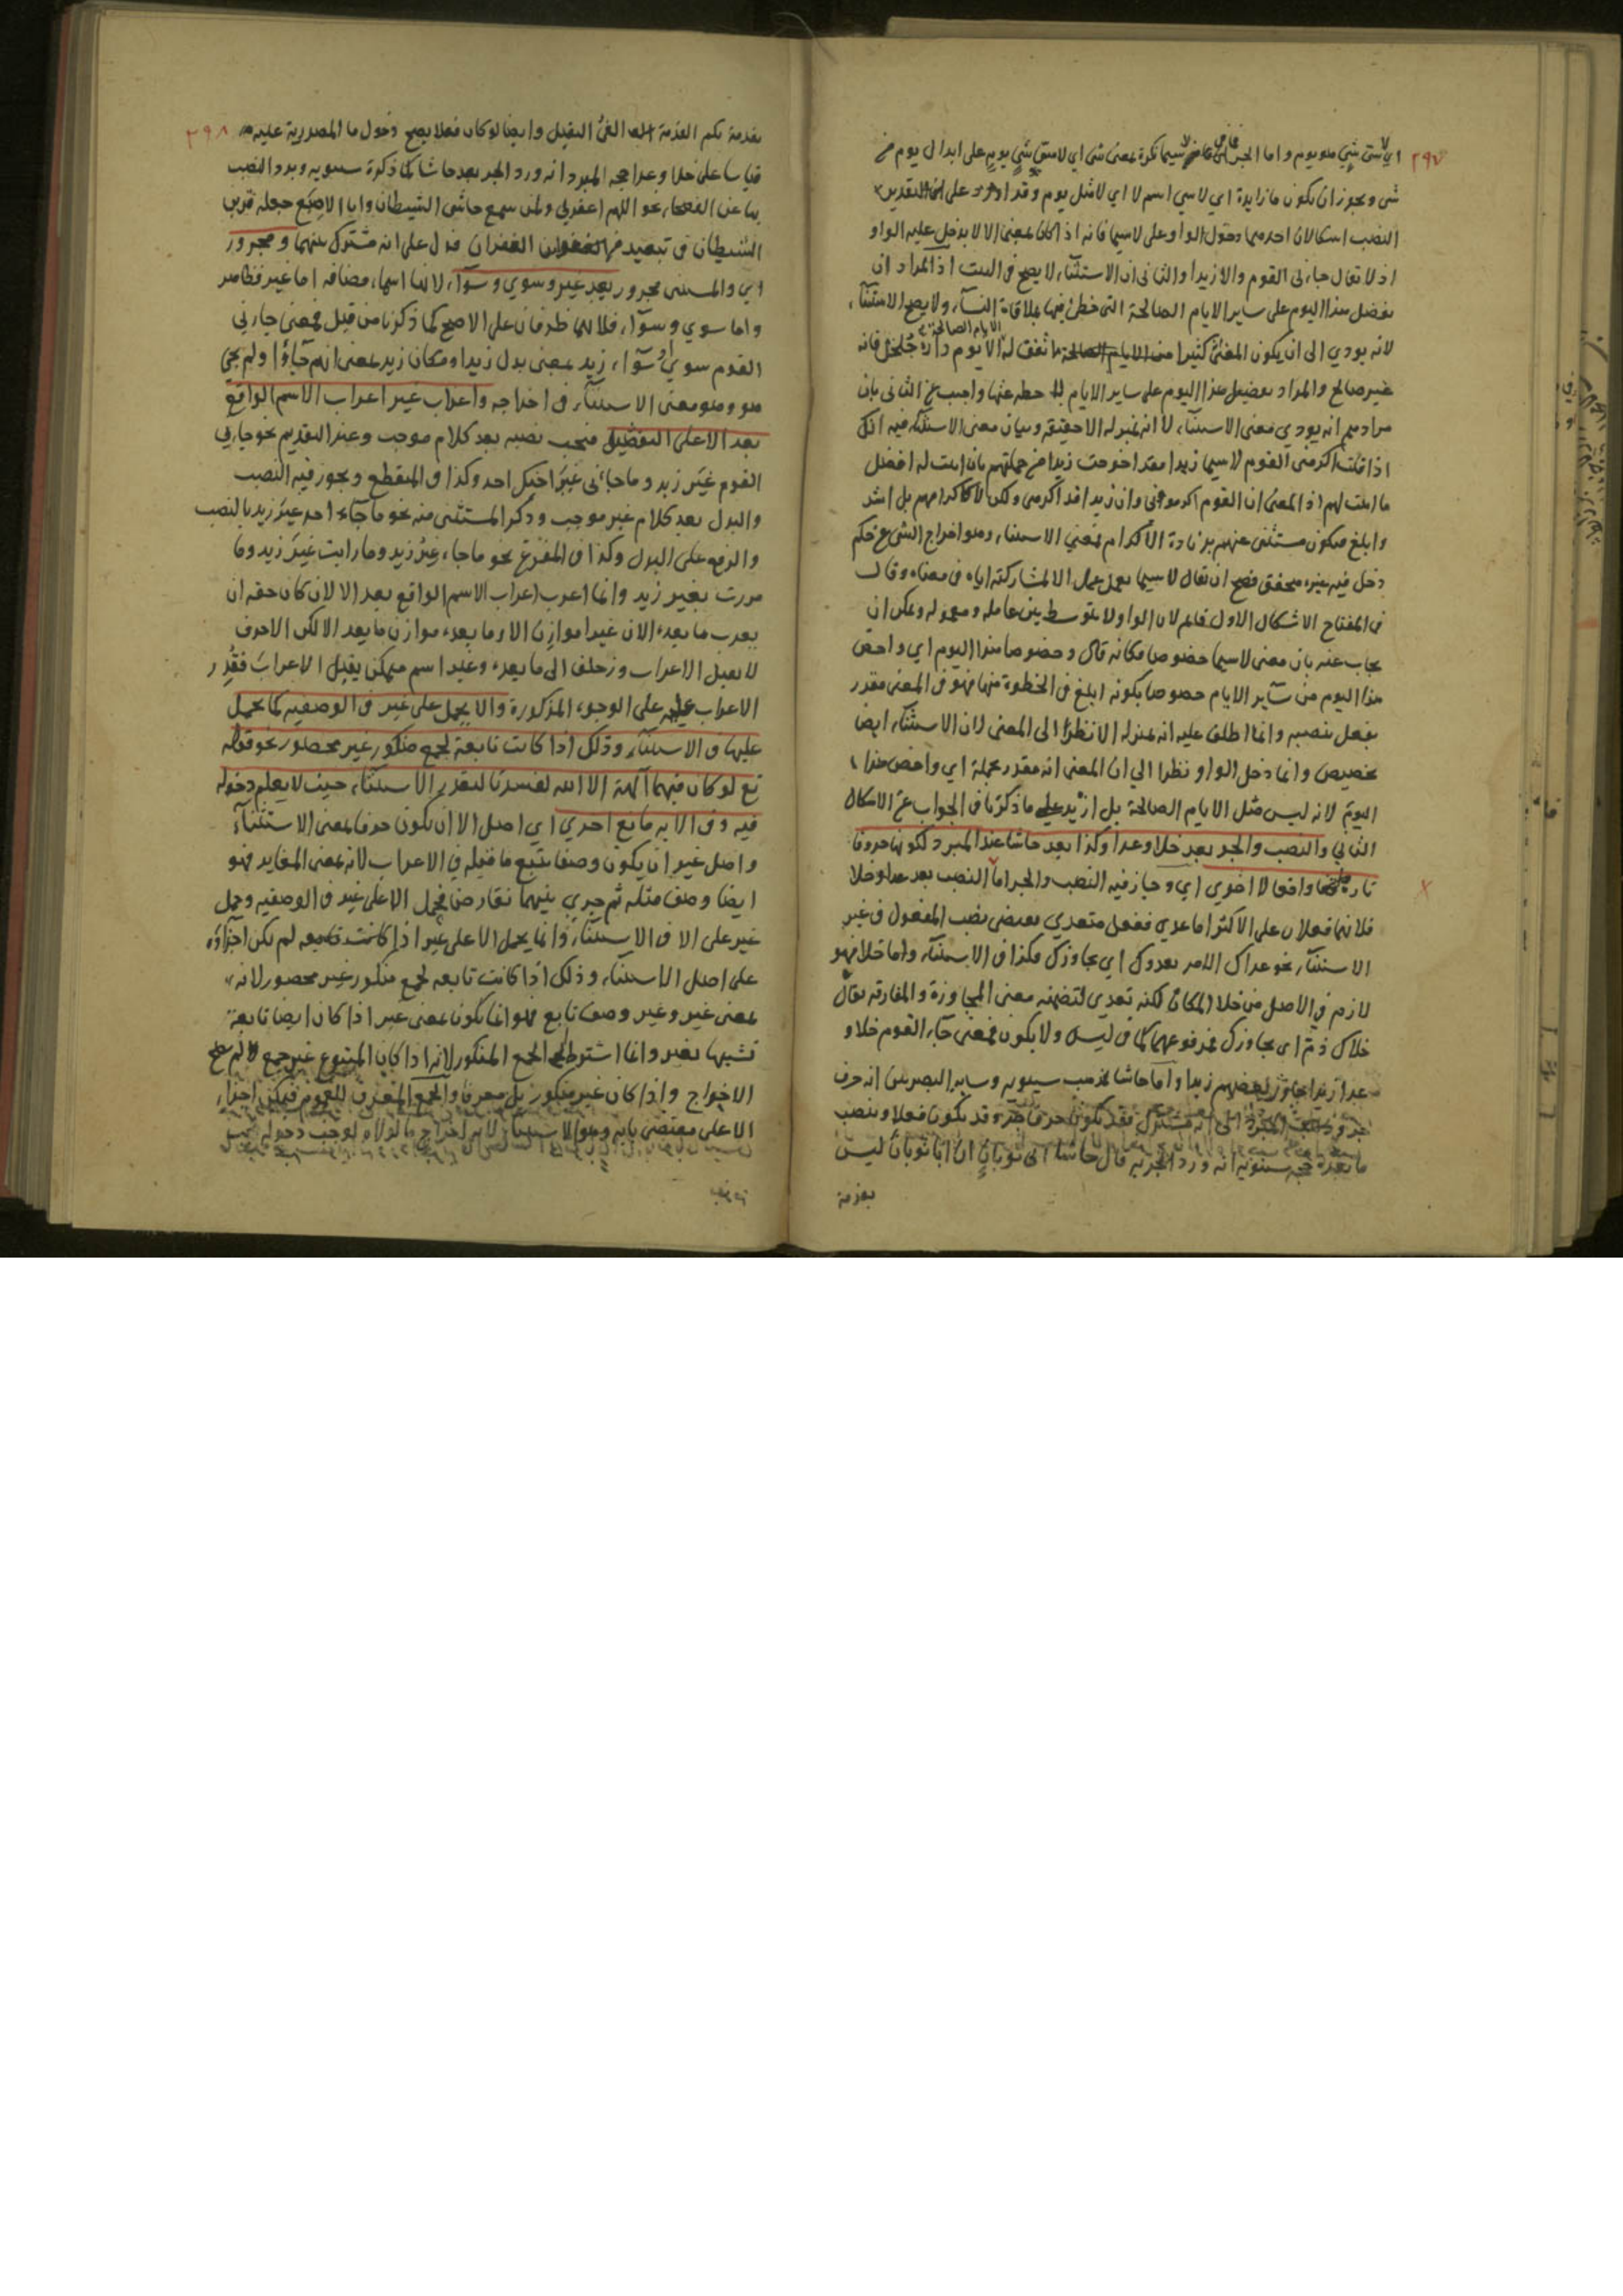 ٢٩٧
اي لا سي شي هو يوم واما الجر فلان ما في لا سيما نكرة بمعنى شي اي لا سي شي يوم على ابدال يوم من
شي ويجوز ان يكون ما زايدة اي لا سي اسم لا اي لا مثل يوم وقد اورد على التقدير
النصب اشكالان احدهما دخول الواو على لا سيما فانه اذا كان بمعنى الا لا يدخل عليه الواو
اذ لا يقال جاءني القوم والا زيدا والثاني ان الاستثناء لا يصح في البيت اذ المراد ان
يفضل هذا اليوم على ساير الايام الصالحة التي حظي فيها بملاقاة النساء ولا يصح الاستثناء
لانه يودي الى ان يكون المعنى كثيرا من الايام الصالحة ما تفق له الا يوم دارة جلجل فانه
غير صالح والمراد تفضيل هذا اليوم على ساير الايام لا حطه عنها واجيب عن الثاني بان
مرادهم انه يودي معنى الاستثناء لا انه بمنزلة الا حقيقة وبيان معنى الاستثناء فيه انك
اذا قلت اكرمني القوم لا سيما زيدا فقد اخرجت زيدا من جملتهم بان اثبت له افضل
ما اثبت لهم اذ المعنى ان القوم اكرموني وان زيدا قد اكرمني ولكن لا كاكرامهم بل اشد
وابلغ فيكون مستثنى عنهم بزيادة الاكرام فمعنى الاستثناء وهو اخراج الشي عن حكم
دخل فيه غيره محقق فصح ان يقال لا سيما يعمل عمل الا لمشاركته اياه في معناه وقال
في المفتاح الاشكال الاول قايم لان الواو لا يتوسط بين عامله ومعموله ويمكن ان
يجاب عنه بان معنى لا سيما خصوصا فكانه قال وخصوصا هذا اليوم اي واخص
هذا اليوم من ساير الايام خصوصا بكونه ابلغ في الخطوة منها فهو في المعنى مقدر
بفعل ينصبه وانما اطلق عليه انه بمنزلة الا نظرا الى المعنى لان الاستثناء ايضا
تخصيص وانما دخل الواو نظرا الى ان المعنى انه مقدر بجملة اي واخص هذا
اليوم لانه ليس مثل الايام الصالحة بل ازيد على ما ذكرنا في الجواب عن الاشكال
الثاني والنصب والجر بعد خلا وعدا وكذا بعد حاشا عند المبرد لكونها حروفا
تارة وافعالا اخرى اي وجاز فيه النصب والجر اما النصب بعد عدا وخلا
فلانهما فعلان على الاكثر اما عدى ففعل متعدي يقتضي نصب المفعول في غير
الاستثناء نحو عداك الامر يعدوك اي يجاوزك فكذا في الاستثناء واما خلا فهو
لازم في الاصل من خلا المكان لكنه تعدى لتضمنه معنى المجاوزة والمفارقة يقال
خلاك ذم اي يجاوزك فمرفوعهما كما في ليس ولا يكون فمعنى جاء القوم خلا و
عدا زيدا يجاوز بعضهم زيدا واما حاشا فمذهب سيبويه وساير البصريين انه حرف
جر وذهب المبرد الى انه مشترك فقد يكون حرف جر وقد يكون فعلا وينصب
ما بعده حجة سيبويه انه ورد الجر به قال حاشا ابي ثوبان ان ابا ثوبان ليس
بفدمة
٢٩٨
بفدمة بكم الفدمة العي الثقيل وايضا لو كان فعلا يصح دخول ما المصدرية عليه
قياسا على خلا وعدا حجة المبرد انه ورد الجر بعد حاشا كما ذكره سيبويه وورد النصب
بها عن الفصحاء نحو اللهم اغفر لي ولمن سمع حاشى الشيطان وابا الاصبع جعله قرين
الشيطان في تبعيد من الغفران فدل على انه مشترك بينهما ومجرور
اي والمستثنى مجرور بعد غير وسوي وسواء لانها اسماء مضافه اما غير فظاهر
واما سوي وسواء فلانهما ظرفان على الاصح كما ذكرنا من قبل فمعنى جاءني
القوم سوي او سواء زيد بمعنى بدل زيد او مكان زيد بمعنى انهم جاءوا ولم يجئ
هو وهو معنى الاستثناء في اخراجه واعراب غير اعراب الاسم الواقع
بعد الا على التفصيل فيجب نصبه بعد كلام موجب وعند التقديم نحو جاءني
القوم غير زيد وما جاءني غير اخيك احد وكذا في المنقطع ويجوز فيه النصب
والبدل بعد كلام غير موجب وذكر المستثنى منه نحو ما جاء احد غير زيد بالنصب
والرفع على البدل وكذا في المفرغ نحو ما جاء غير زيد وما رايت غير زيد وما
مررت بغير زيد وانما اعرب اعراب الاسم الواقع بعد الا لان كان حقه ان
يعرب ما بعده الا ان غيرا موازن الا وما بعده موازن ما بعد الا لكن الا حرف
لا يقبل الاعراب وزحلف الى ما بعده وغير اسم متمكن يقبل الاعراب فقدر
الاعراب عليه على الوجوه المذكورة والا يحمل على غير في الوصفيه كما يحمل
عليها في الاستثناء وذلك اذا كانت تابعة لجمع منكور غير محصور نحو قوله
تع لو كان فيهما الهة الا الله لفسدتا لتعذر الاستثناء حيث لا يعلم دخوله
فيه وفي الآيه مانع اخري اي اصل الا ان يكون حرفا بمعنى الاستثناء
واصل غير ان يكون وصفا يتبع ما قبله في الاعراب لانه بمعنى المغاير فهو
ايضا وصف مثله ثم جري بينهما تقارض فيحمل الا على غير في الوصفيه وحمل
غير على الا في الاستثناء وانما يحمل الا على غير اذا كانت تابعه لم يكن اجراؤه
على اصل الاستثناء وذلك اذا كانت تابعه لجمع منكور غير محصور لانه
بمعنى غير وغير وصف تابع فهو انما يكون بمعنى غير اذا كان ايضا تابعة
تشبيها بغير وانما اشترط الجمع المنكور لانه اذا كان المتبوع غير جمع لم يصح
الاخراج واذا كان غير منكور بل معرفا والجمع المعرف للعموم فيمكن اجراء
الا على مقتضى بابه وهو الاستثناء لانه اخراج ما لولاه لوجب دخوله